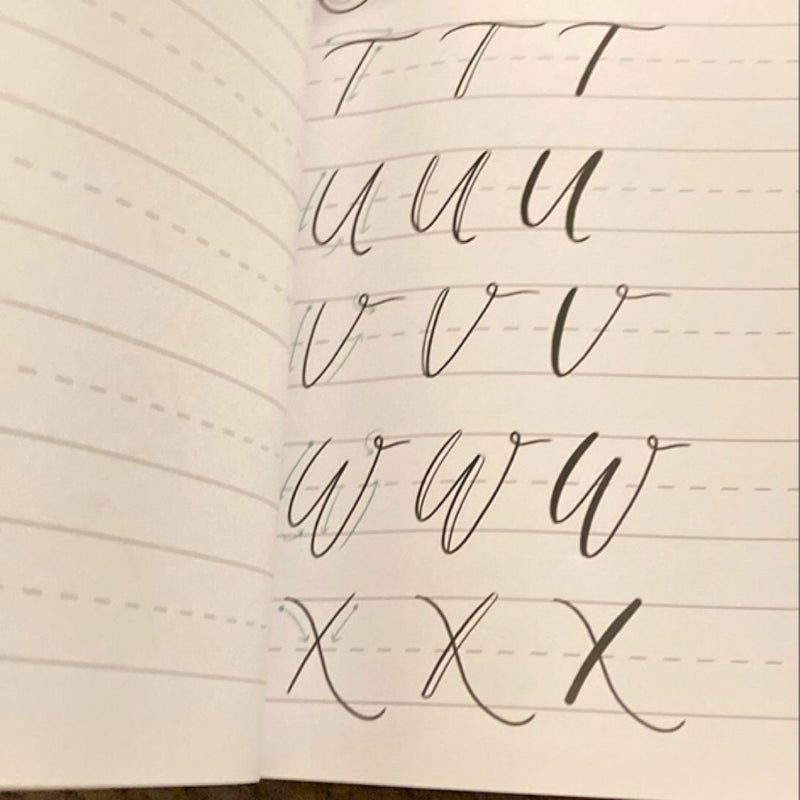 T T T
U U U
V V V
W W W
X X X